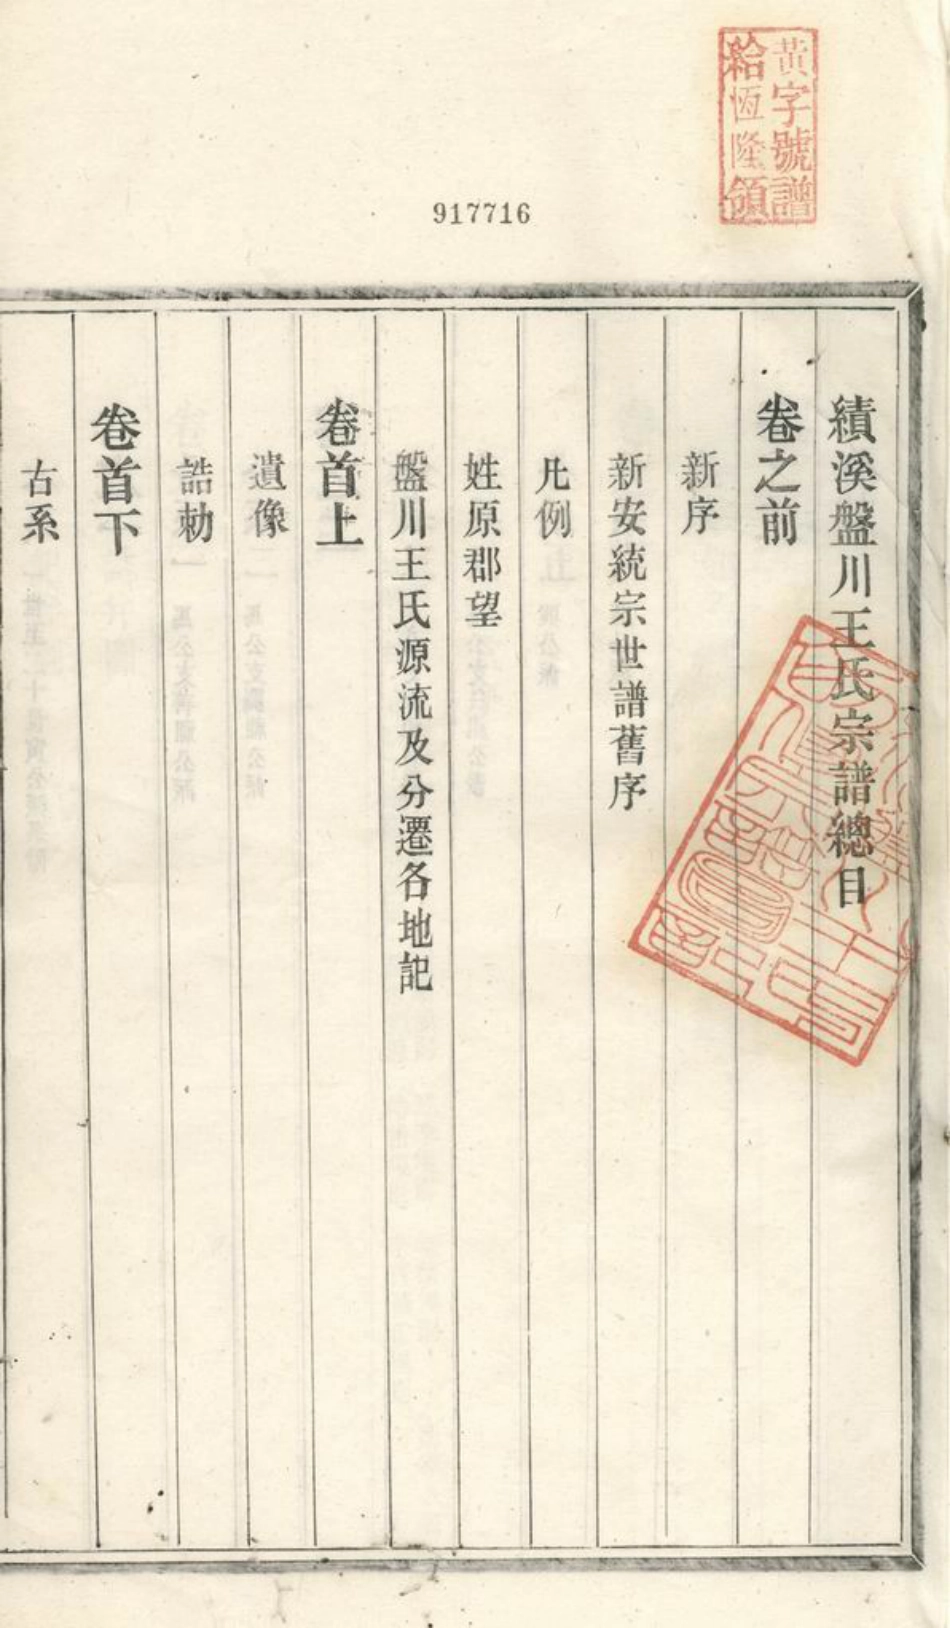 黃字號譜
給恆隆領
917716
績溪盤川王氏宗譜總目
卷之前
新序
新安統宗世譜舊序
凡例
姓原郡望
盤川王氏源流及分遷各地記
卷首上
遺像
誥勅
卷首下
古系